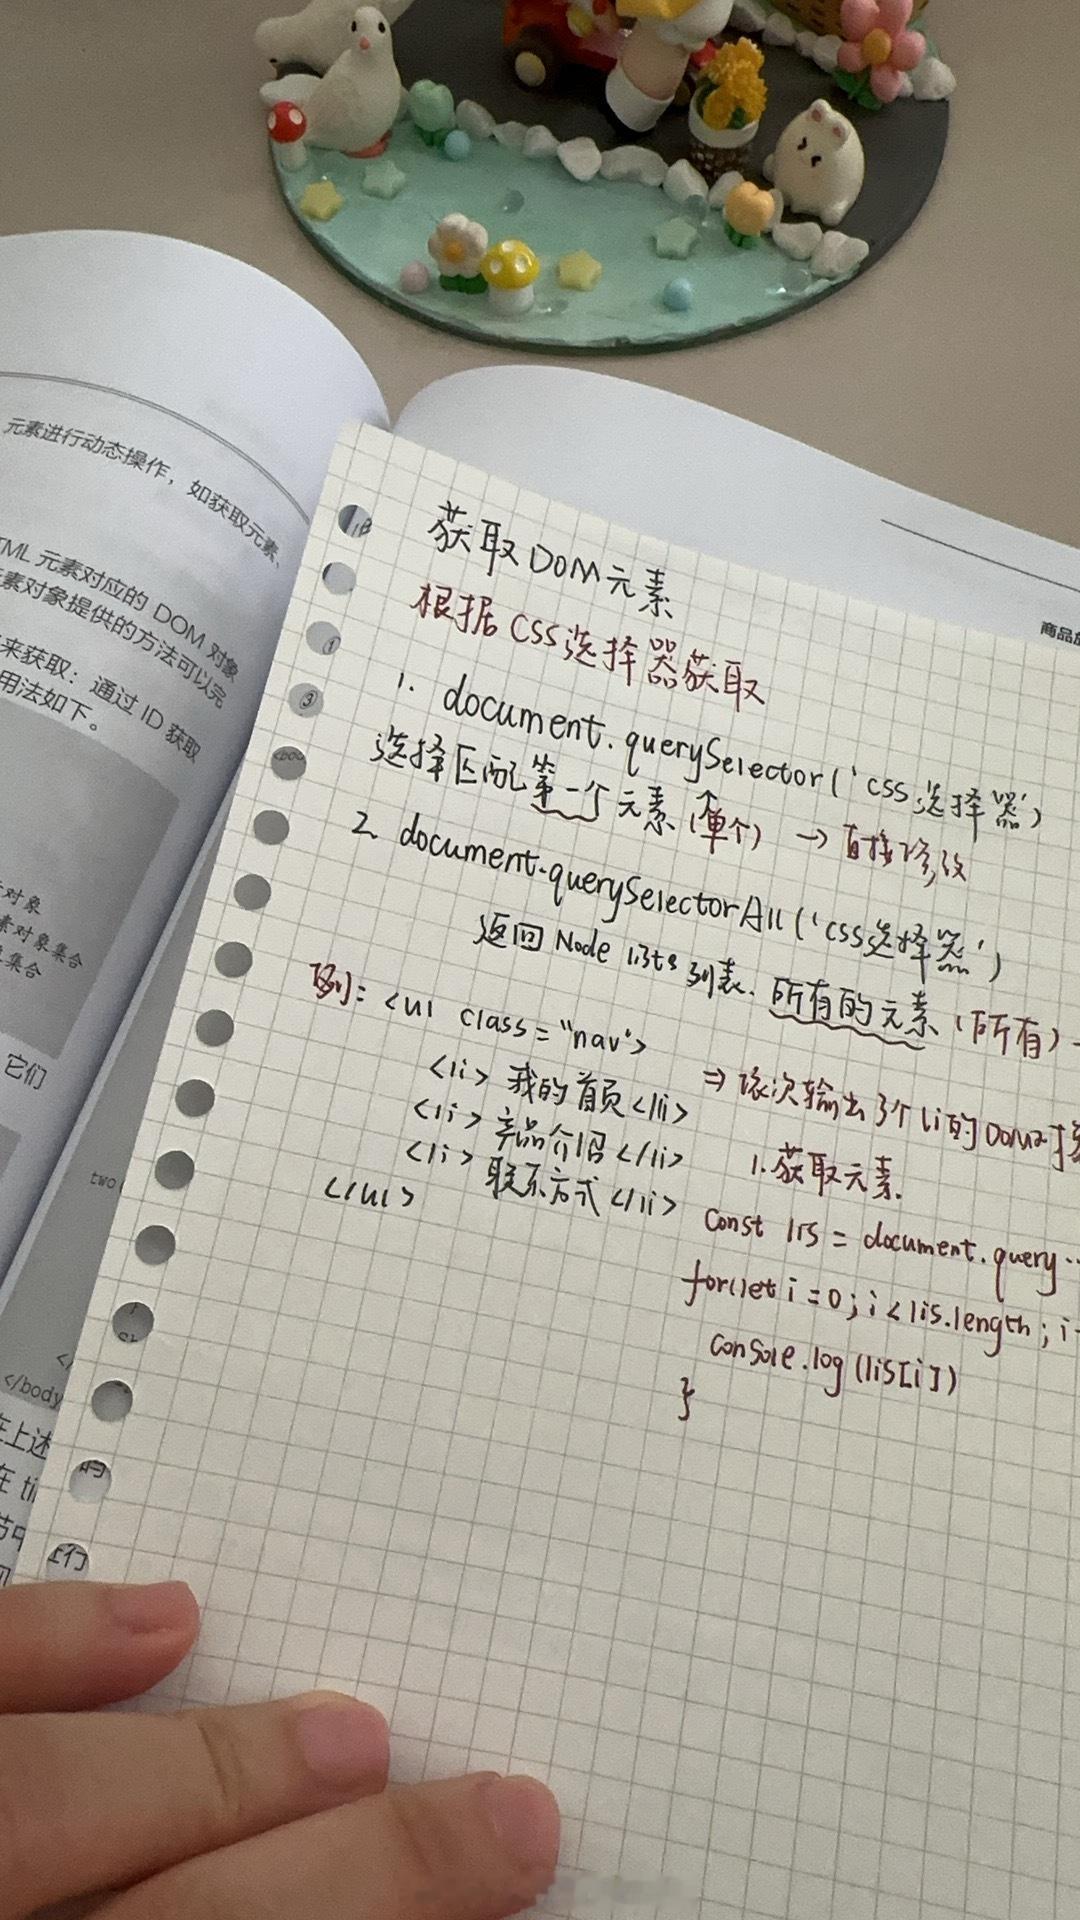 元素进行动态操作，如获取元素、
TML 元素对应的 DOM 对象
素对象提供的方法可以完
来获取：通过 ID 获取
用法如下。
对象
素对象集合
集合
它们
two
</body
在上述
在 ti
节中
商品
获取DOM元素
根据CSS选择器获取
1. document.querySelector('css选择器')
选择匹配第一个元素(单个) → 直接修改
2. document.querySelectorAll('css选择器')
返回 Node lists列表. 所有的元素 (所有)
例: <ul class="nav">
<li> 我的首页 </li>
<li> 产品介绍 </li>
<li> 联系方式 </li>
</ul>
⇒ 依次输出3个li的DOM对
1. 获取元素.
const lis = document.query…
for(let i=0; i<lis.length; i
console.log (lis[i])
}